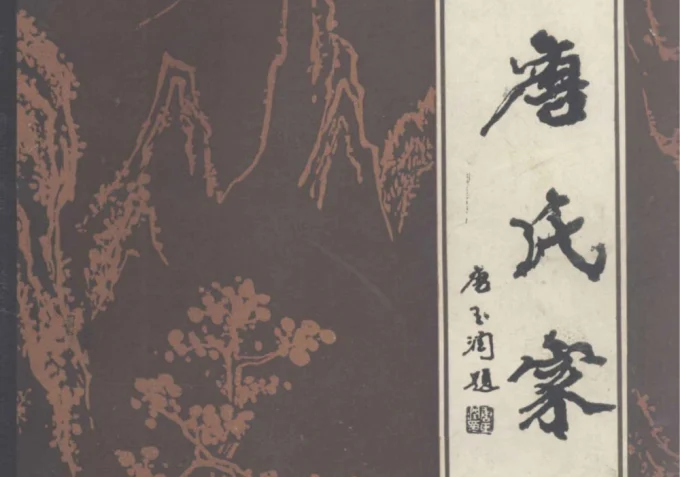 唐氏家
唐玉润题